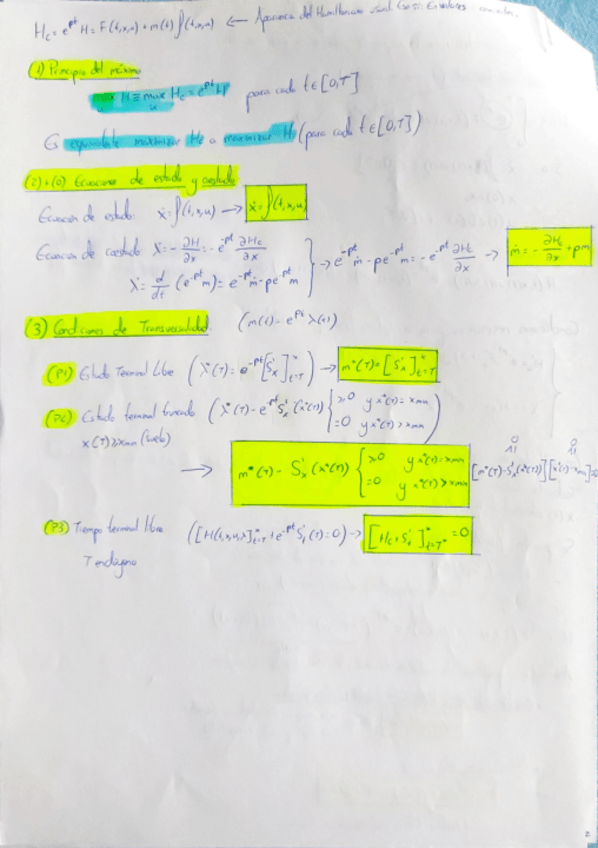 H_c = e^{ρt} H = F(t,x,u) + m(t) f(t,x,u) ← Apariencia del Hamiltoniano usual
(1) Principio del máximo
max_u H ≡ max_u H_c = e^{ρt} H para cada t ∈ [0,T]
Es equivalente maximizar H_c a maximizar H (para cada t ∈ [0,T])
(2)+(0) Ecuaciones de estado y coestado
Ecuación de estado: ẋ = f(t,x,u) → ẋ = f(t,x,u)
Ecuación de coestado λ̇ = -∂H/∂x = -e^{-ρt} ∂H_c/∂x
λ̇ = d/dt (e^{-ρt} m) = e^{-ρt} ṁ - ρe^{-ρt} m } → e^{-ρt} ṁ - ρe^{-ρt} m = -e^{-ρt} ∂H_c/∂x → ṁ = -∂H_c/∂x + ρm
(3) Condiciones de Transversalidad (m(t) = e^{ρt} λ(t))
(P1) Estado Terminal Libre (λ*(T) = e^{-ρt} [S'_x]*_{t=T}) → m*(T) = [S'_x]*_{t=T}
(P2) Estado terminal truncado (λ*(T) - e^{-ρt} S'_x (x*(T)) { ≥0 y x*(T) = x_min
=0 y x*(T) > x_min )
x(T) ≥ x_min (suelo)
→ m*(T) - S'_x (x*(T)) { ≥0 y x*(T) = x_min
=0 y x*(T) > x_min [m*(T) - S'_x (x*(T))] [x*(T) - x_min] = 0
(P3) Tiempo terminal libre ([H(t,x,u,λ)]*_{t=T} + e^{-ρt} S'_t (T) = 0) → [H_c + S'_t]*_{t=T*} = 0
T endógeno
2